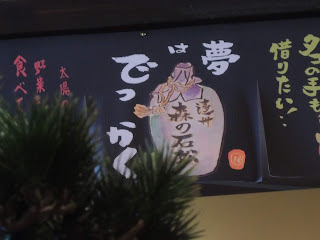 タコの手も
借りたい!
夢
は
でっかく
遠州
森の石松
太陽の
野菜
食べ